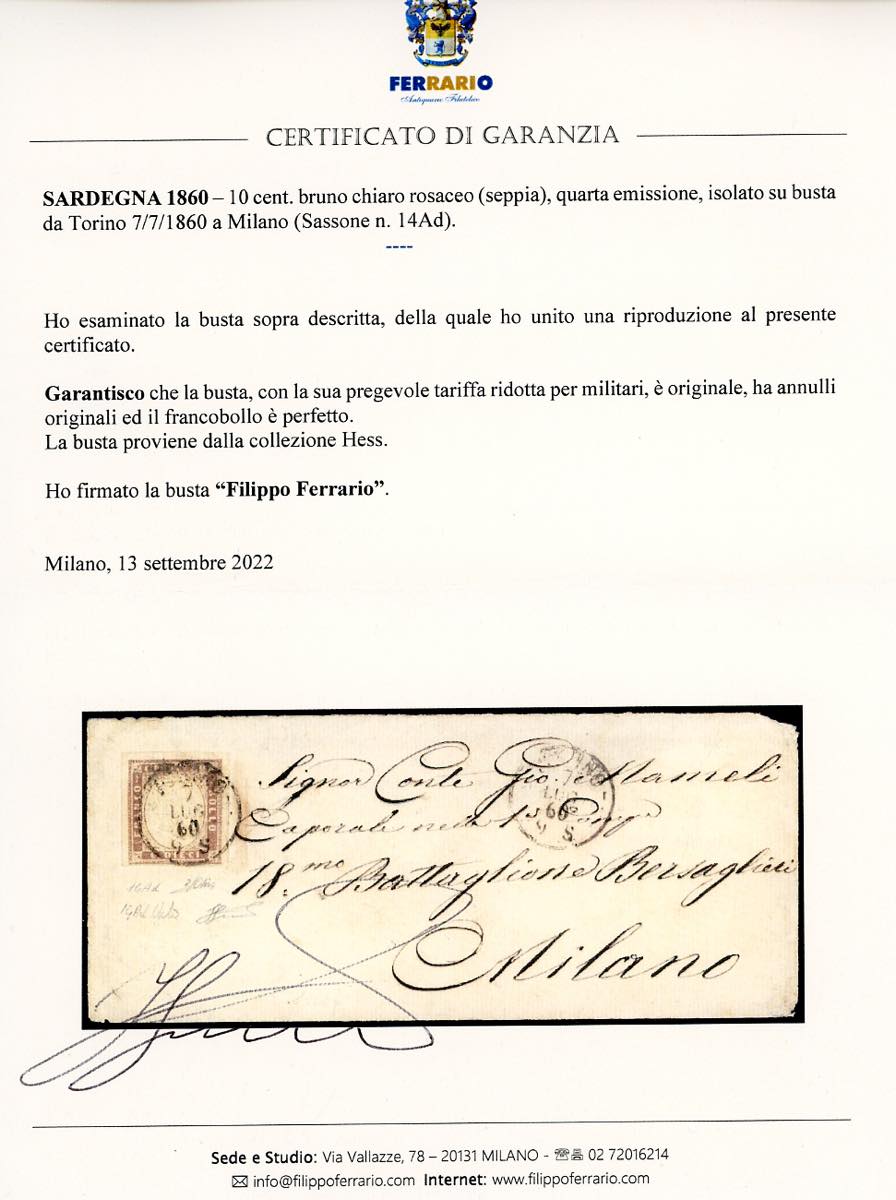 FERRARIO
Antiquario Filatelico
CERTIFICATO DI GARANZIA
SARDEGNA 1860 – 10 cent. bruno chiaro rosaceo (seppia), quarta emissione, isolato su busta
da Torino 7/7/1860 a Milano (Sassone n. 14Ad).
----
Ho esaminato la busta sopra descritta, della quale ho unito una riproduzione al presente
certificato.
Garantisco che la busta, con la sua pregevole tariffa ridotta per militari, è originale, ha annulli
originali ed il francobollo è perfetto.
La busta proviene dalla collezione Hess.
Ho firmato la busta “Filippo Ferrario”.
Milano, 13 settembre 2022
Signor Conte Gio. Mameli
Caporale nella 1ª Comp
18.mo Battaglione Bersaglieri
Milano
7
LUG
60
9 S
7
LUG
60
9 S
BOLLO
14Ad
Sede e Studio: Via Vallazze, 78 – 20131 MILANO - 02 72016214
info@filippoferrario.com Internet: www.filippoferrario.com